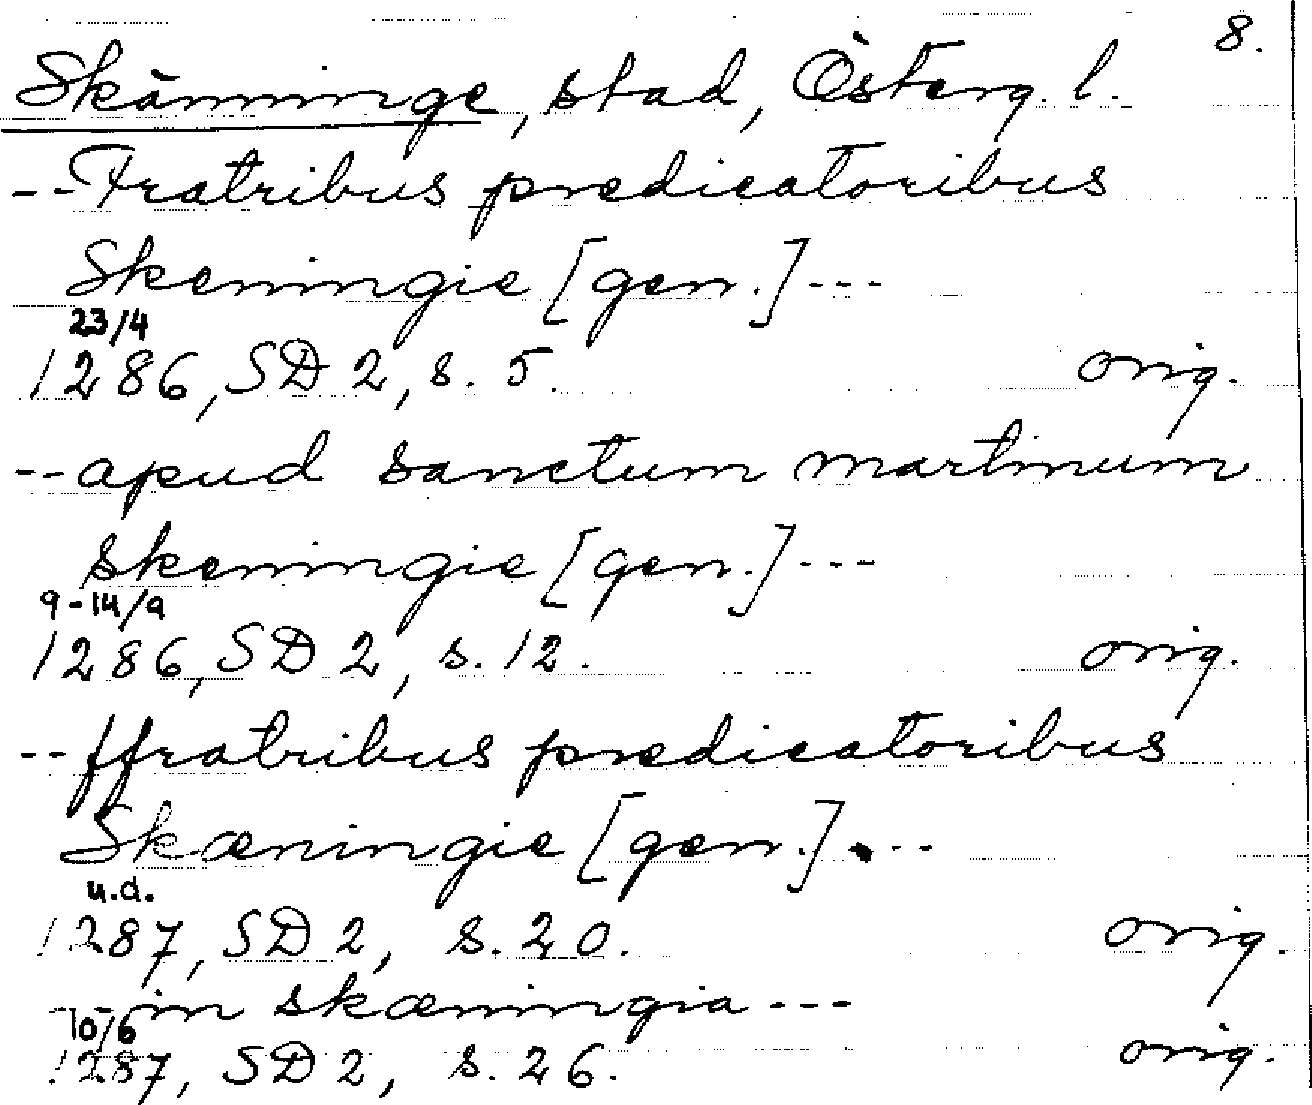 8.
Skänninge, stad, Österg. l.
--Fratribus predicatoribus
Skeningie [gen.]---
23/4
1286, SD 2, s. 5. orig.
--apud sanctum martinum
skeningie [gen.]---
9-14/9
1286, SD 2, s. 12. orig.
--ffratribus predicatoribus
Skæningie [gen.]---
u.d.
1287, SD 2, s. 20. orig.
--in skæningia---
10/6
1287, SD 2, s. 26. orig.